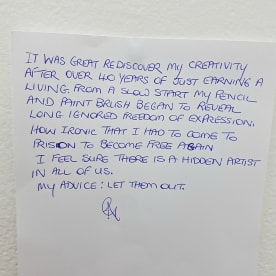 IT WAS GREAT REDISCOVER MY CREATIVITY
AFTER OVER 40 YEARS OF JUST EARNING A
LIVING. FROM A SLOW START MY PENCIL
AND PAINT BRUSH BEGAN TO REVEAL
LONG IGNORED FREEDOM OF EXPRESSION.
HOW IRONIC THAT I HAD TO COME TO
PRISON TO BECOME FREE AGAIN
I FEEL SURE THERE IS A HIDDEN ARTIST
IN ALL OF US.
MY ADVICE: LET THEM OUT.